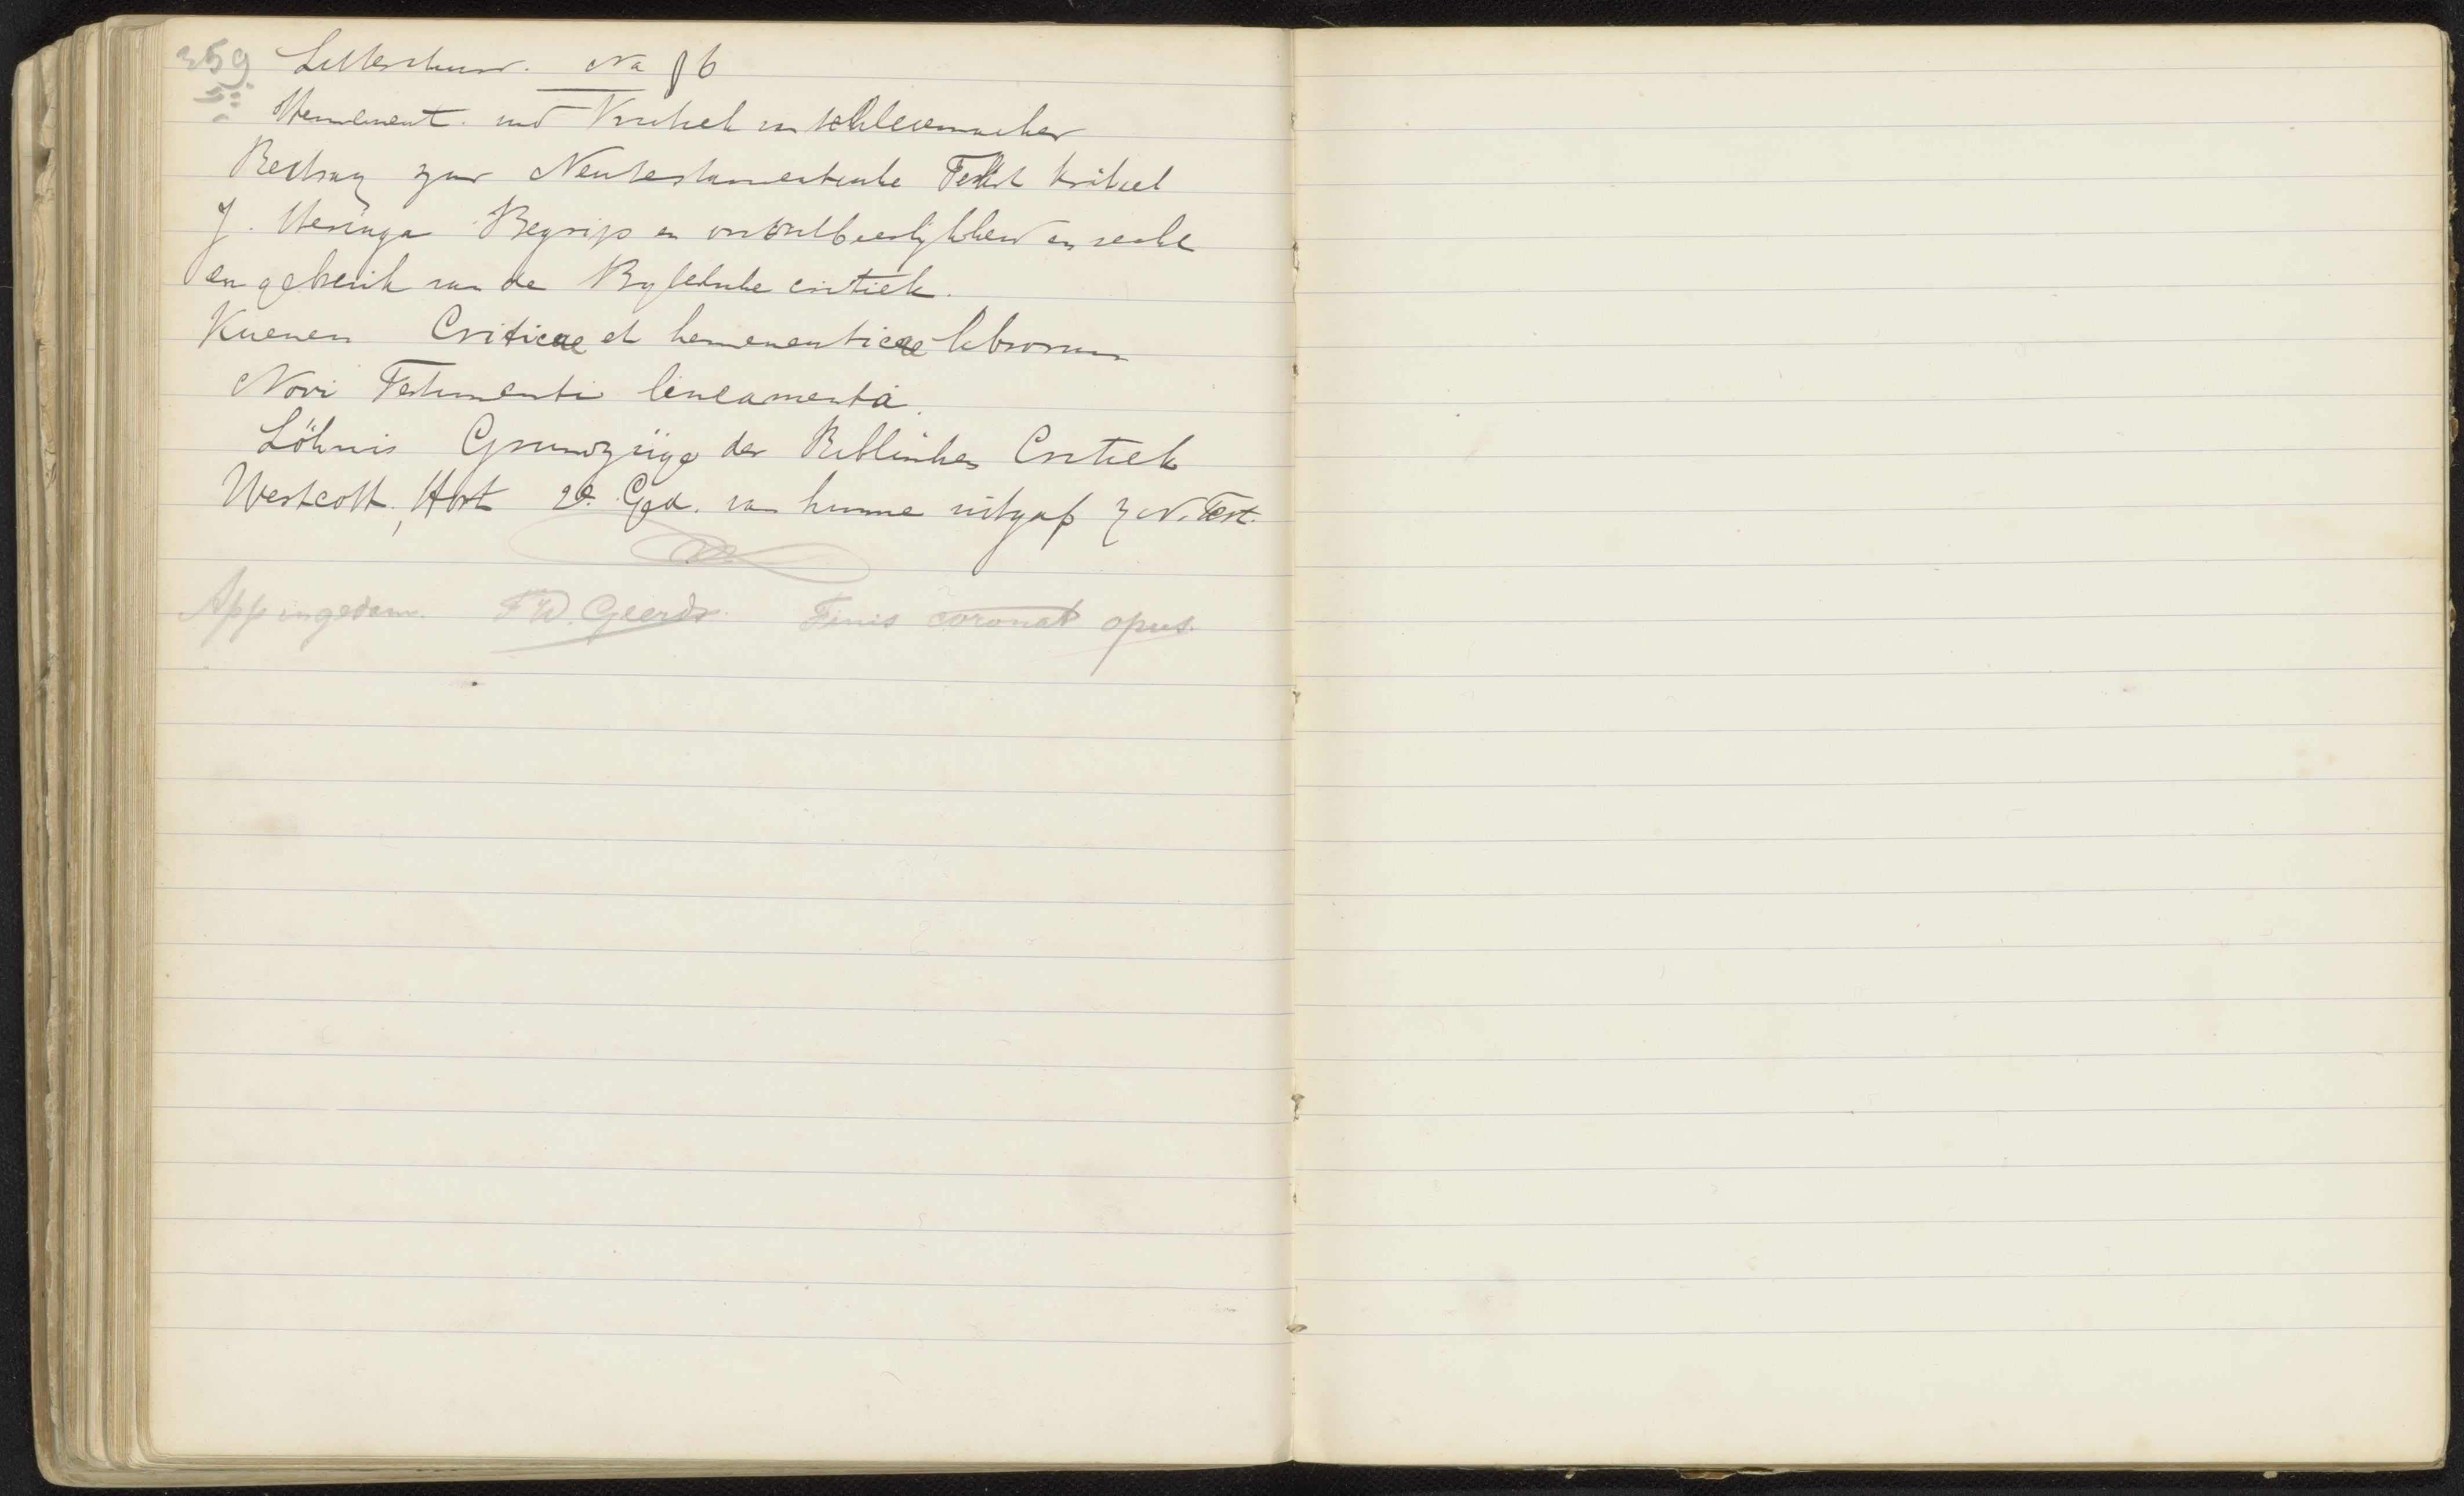 259 Letterkund. Na § 6
Hermeneut. und Kritiek van Schleiermacher
Beitrag zur Neutestamentische Tekst kritiek
J. Heringa Begrip en onontbeerlijkheid en recht
en gebruik van de Bybelsche critiek.
Kuenen Criticae et hermeneuticae librorum
Novi Testamenti lineamenta.
Löhnis Grundzüge der Biblischen Critiek
Westcott, Hort 2e. Ged. van hunne uitgaf z N. Test.
Appingedam. F W. Geerds. Finis coronat opus.